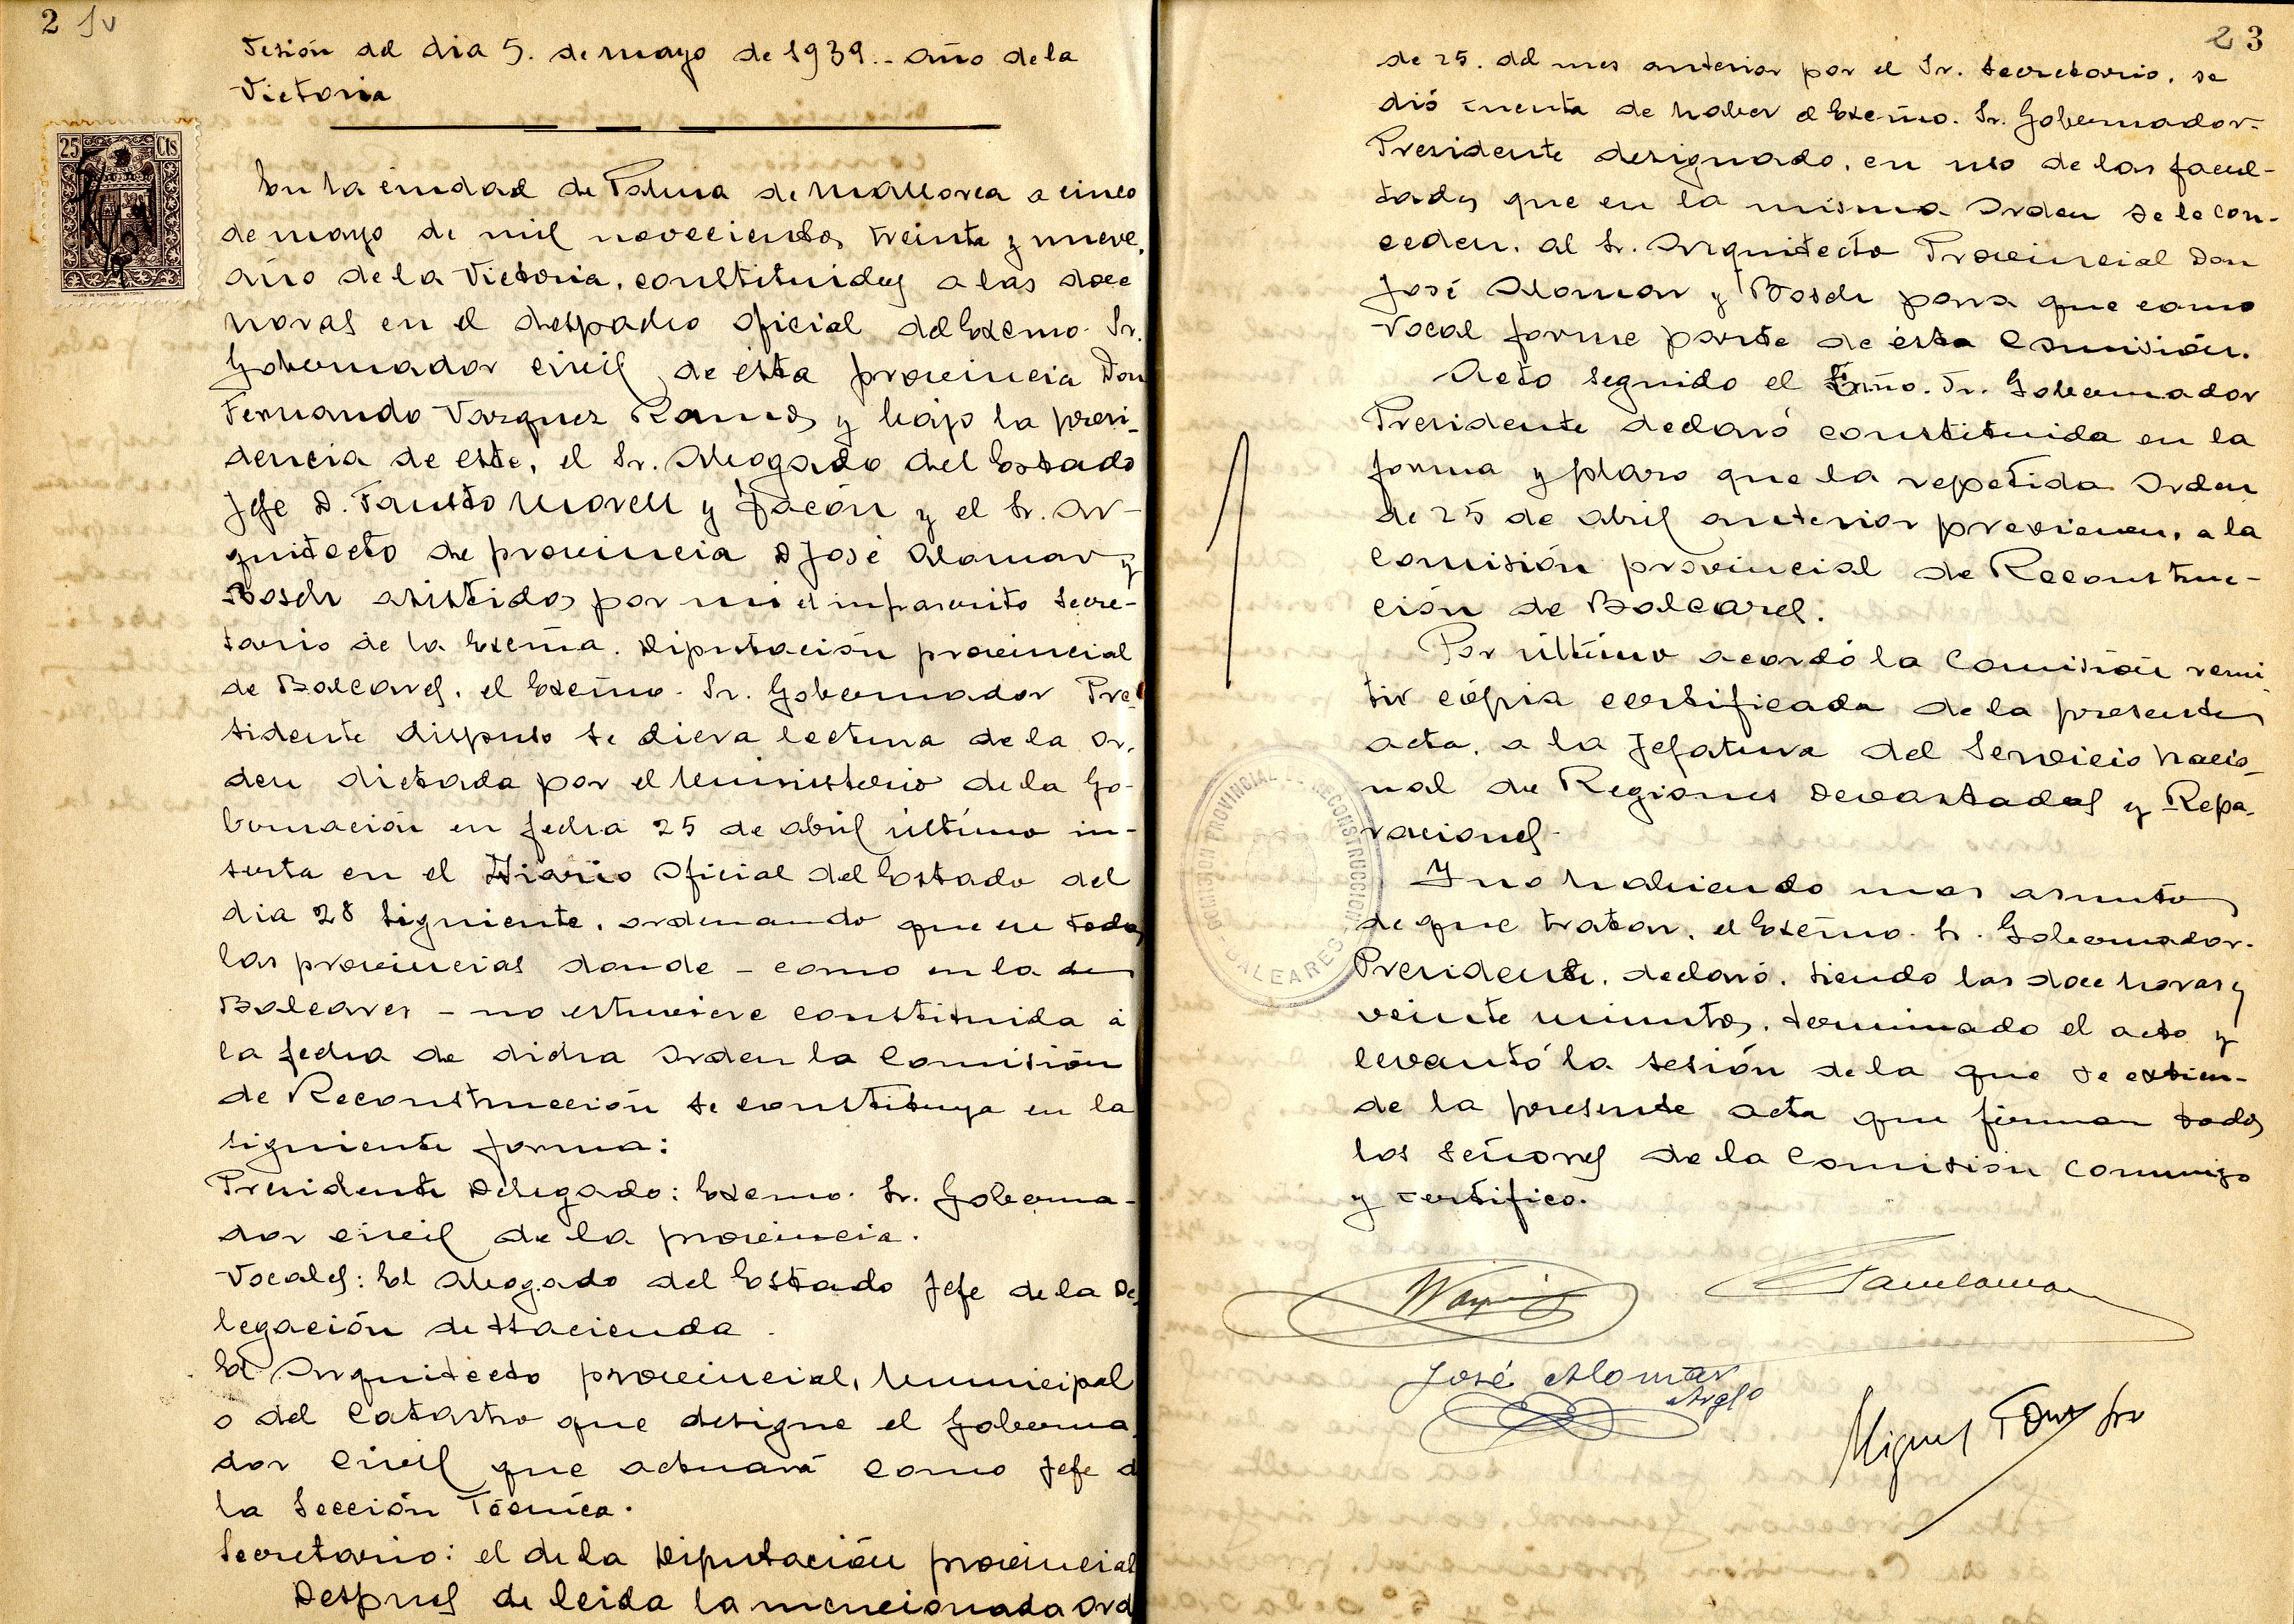 2
Sesión del dia 5. de mayo de 1939.- Año de la
Victoria
25 Cts
En la ciudad de Palma de Mallorca a cinco
de mayo de mil novecientos treinta y nueve,
año de la Victoria, constituidos a las doce
horas en el despacho oficial del Excmo. Sr.
Gobernador civil de ésta provincia Don
Fernando Vazquez Ramos y bajo la presi-
dencia de este, el Sr. Abogado del Estado
Jefe D. Fausto Morell y Tacón y el Sr. Ar-
quitecto de provincia D José Alomar y
Bosch asistidos por mi el infrascrito Secre-
tario de la Excma. Diputación provincial
de Baleares, el Excmo. Sr. Gobernador Pre-
sidente dispuso se diera lectura de la Or-
den dictada por el Ministerio de la Go-
bernación en fecha 25 de abril último in-
serta en el Diario Oficial del Estado del
dia 28 siguiente, ordenando que en todas
las provincias donde - como en la de
Baleares - no estuviere constituida á
la fecha de dicha Orden la Comisión
de Reconstrucción se constituya en la
siguiente forma:
Presidente Delegado: Excmo. Sr. Goberna-
dor civil de la provincia.
Vocales: El Abogado del Estado Jefe de la De-
legación de Hacienda.
El Arquitecto provincial, Municipal
o del Catastro que designe el Goberna-
dor Civil que actuará como Jefe d
la Sección Técnica.
Secretario: el de la Diputación provincial
Despues de leida la mencionada Ord
23
de 25. del mes anterior por el Sr. Secretario, se
dió cuenta de haber el Excmo. Sr. Gobernador-
Presidente designado, en uso de las facul-
tades que en la misma Orden se le con-
ceden, al Sr. Arquitecto Provincial Don
José Alomar y Bosch para que como
Vocal forme parte de ésta Comisión.
Acto seguido el Exmo. Sr. Gobernador
Presidente declaró constituida en la
forma y plazo que la repetida Orden
de 25 de abril anterior previenen, a la
Comisión provincial de Reconstruc-
ción de Baleares.
Por último acordó la Comisión remi-
tir cópia certificada de la presente
acta, a la Jefatura del Servicio Nacio-
nal de Regiones Devastadas y Repa-
raciones.
Y no habiendo mas asuntos
de que tratar, el Excmo. Sr. Gobernador-
Presidente, declaró, siendo las doce horas y
veinte minutos, terminado el acto y
levantó la sesión de la que se extien-
de la presente acta que firman todos
los Señores de la Comisión conmigo
y certifico.
COMISION PROVINCIAL DE RECONSTRUCCION - BALEARES -
José Alomar
Miguel